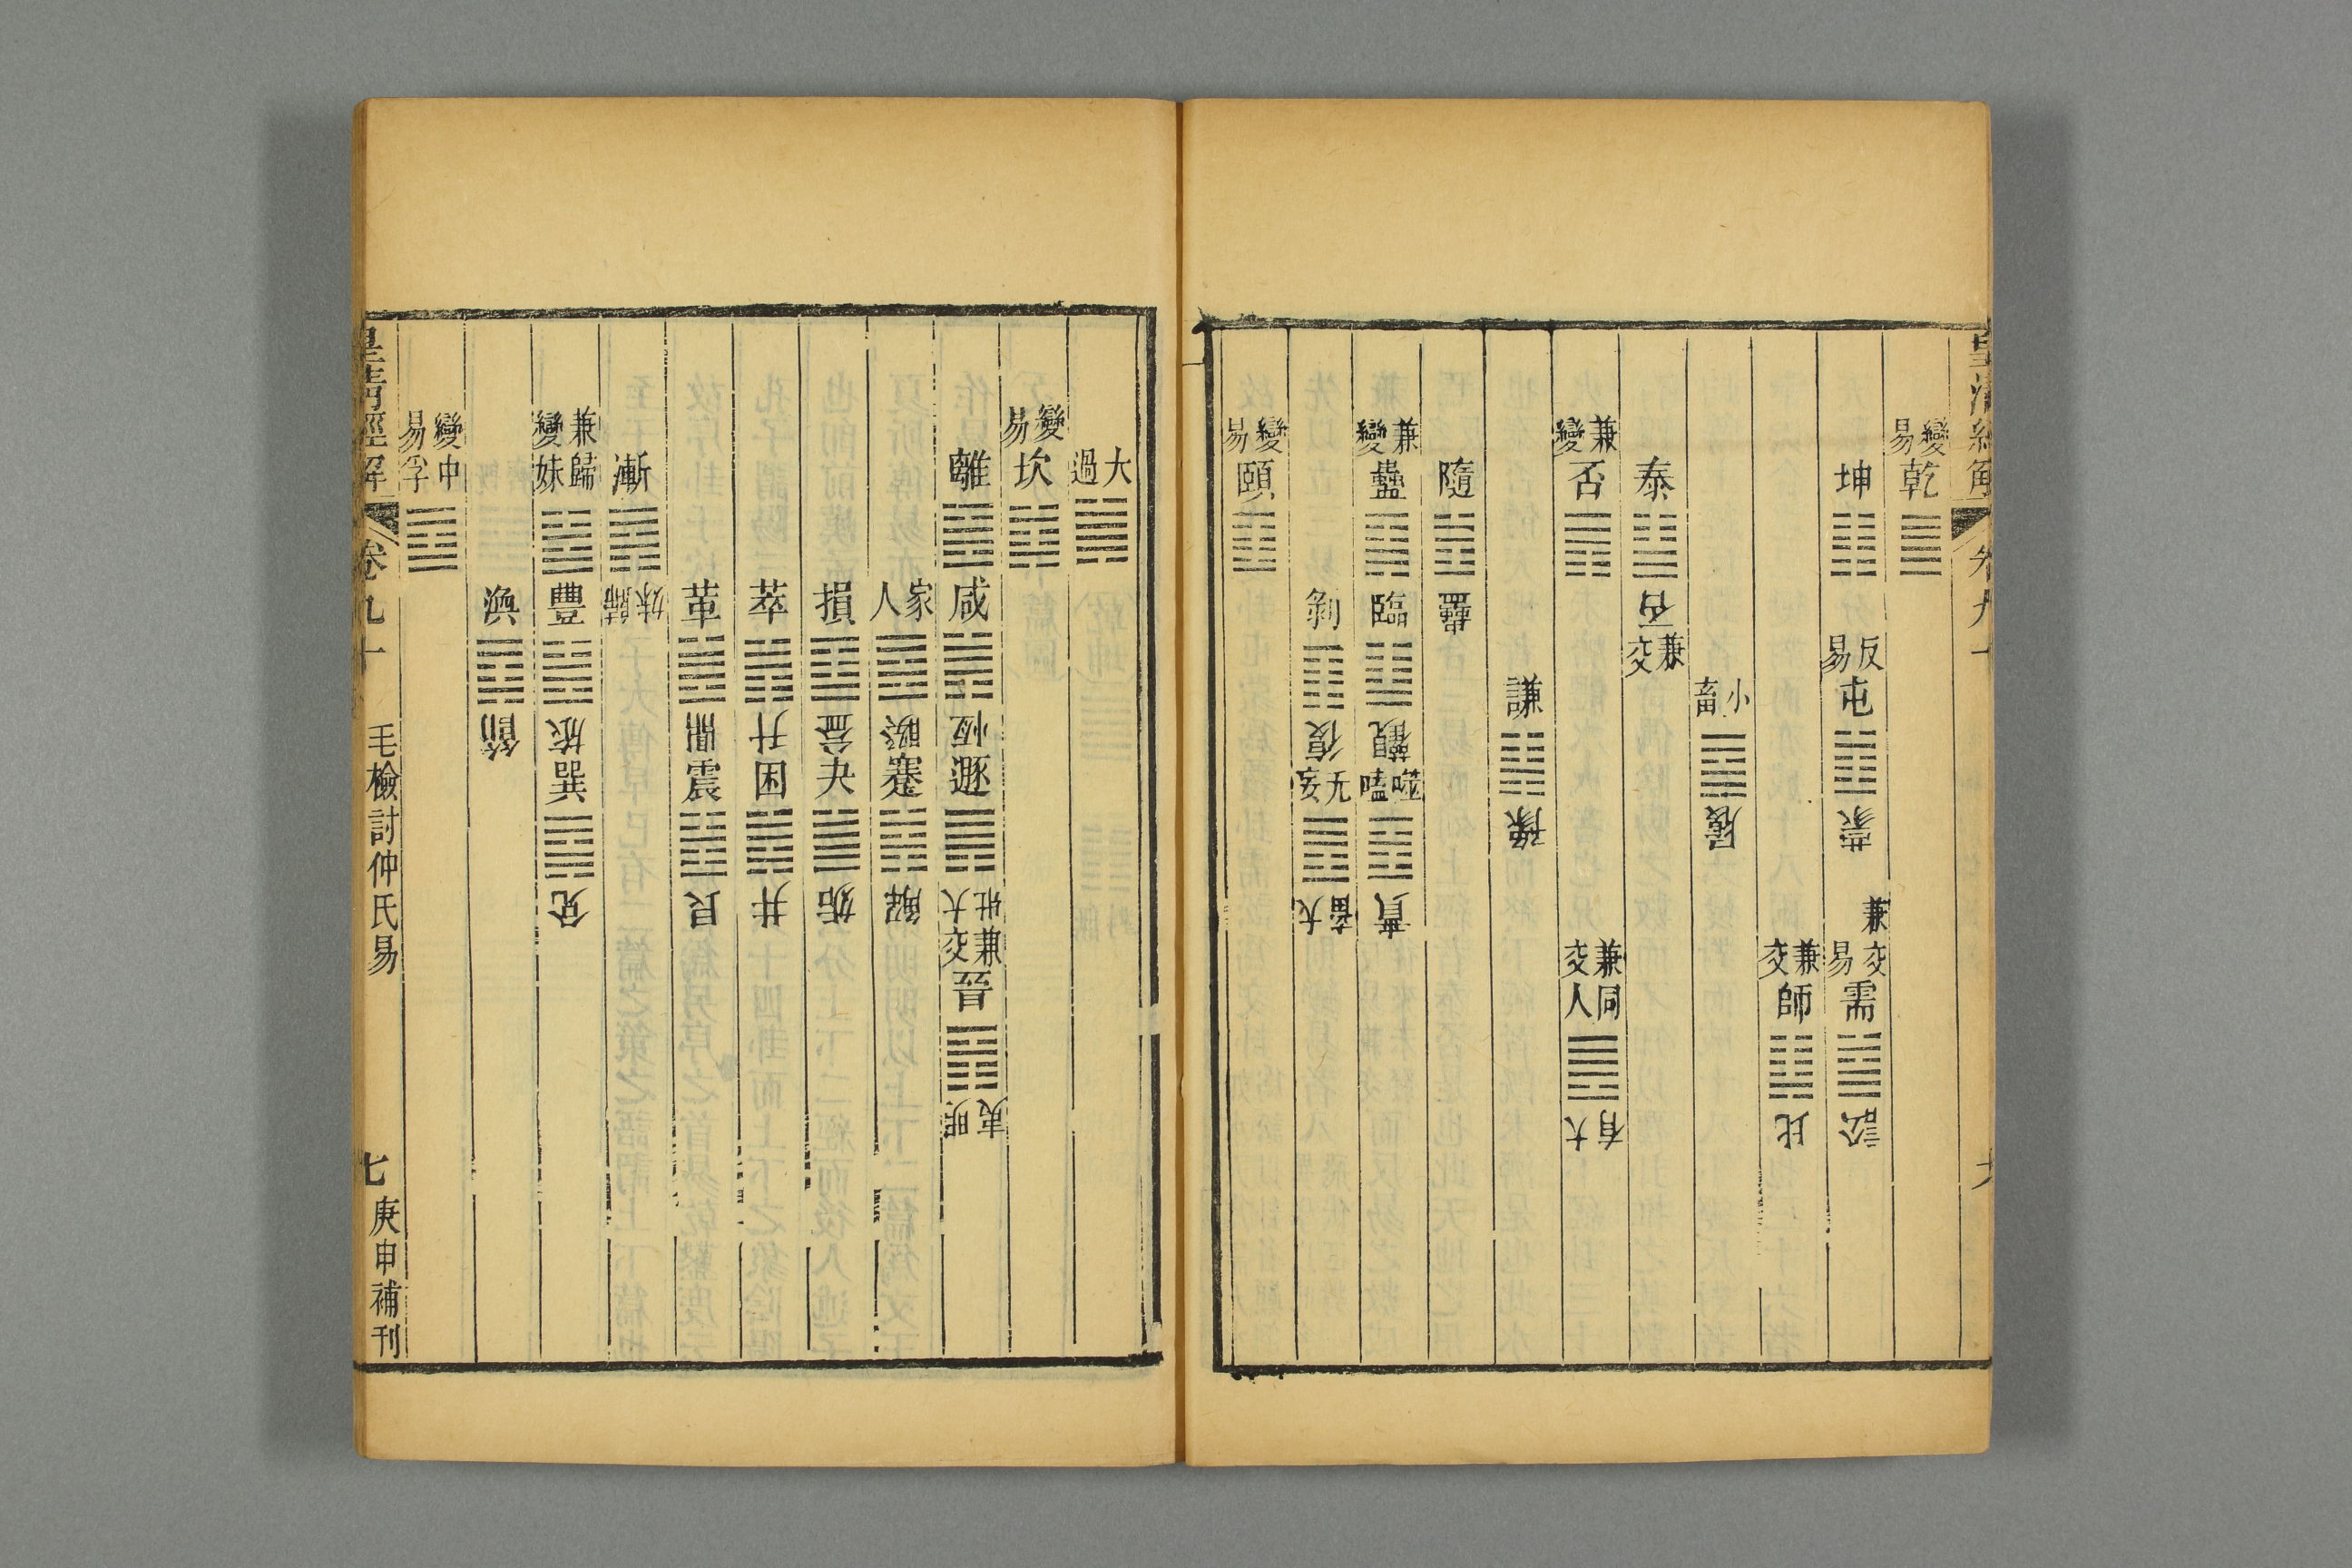 皇清經解 卷九十 六
變易乾
坤 反易屯 蒙 兼交易需 訟
兼交師 比
小畜 履
泰 否 兼交
兼變否 兼交同人 大有
謙 豫
隨 蠱
兼變蠱 臨 觀 噬嗑 賁
剝 復 无妄 大畜
變易頤
大過
變易坎
離 咸 恆 遯 大壯 兼交晉 明夷
家人 睽 蹇 解
損 益 夬 姤
萃 升 困 井
革 鼎 震 艮
漸 歸妹
兼變歸妹 豐 旅 巽 兌
渙 節
變易中孚
皇清經解 卷九十 毛檢討仲氏易 七 庚申補刊